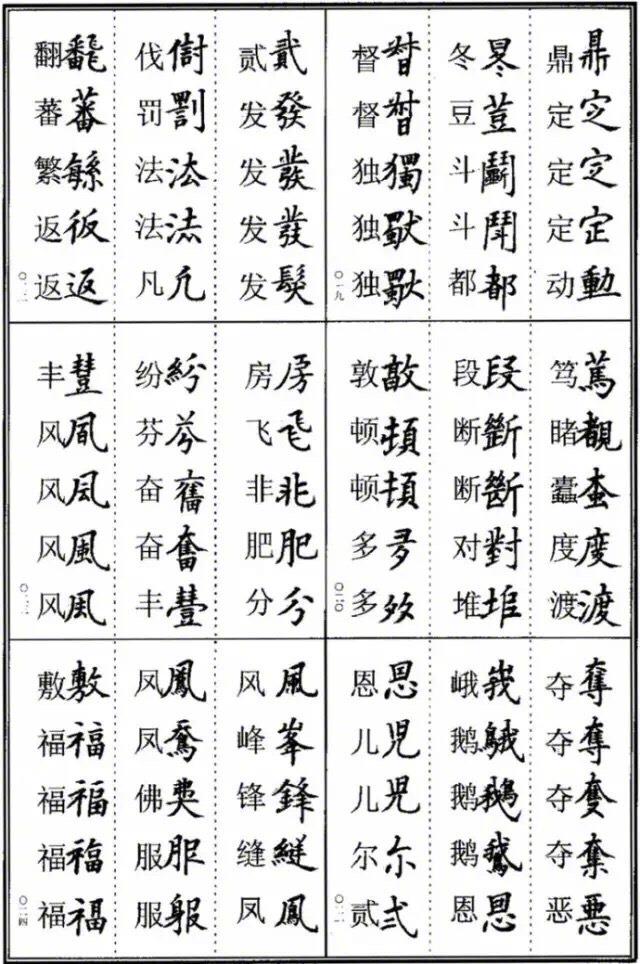 鼎鼎
定㝎
定㝎
定定
动動
冬
豆荳
斗鬭
斗鬥
都都
督
督
独獨
独
独
〇一九
笃篤
睹覩
蠹
度度
渡渡
段段
断斷
断斷
对對
堆
敦敦
顿頓
顿頓
多
多
〇二〇
夺奪
夺奪
夺
夺
恶悪
峨峩
鹅䳘
鹅鵝
鹅鵞
恩
恩恩
儿児
儿兒
尔尒
贰弍
〇二一
贰貳
发發
发發
发發
发髮
伐
罚罰
法法
法
凡凡
翻飜
蕃蕃
繁
返仮
返返
〇二二
房房
飞飛
非非
肥肥
分分
纷紛
芬芬
奋奮
奋奮
丰豐
丰豐
风
风凨
风風
风
〇二三
风風
峰峯
锋鋒
缝縫
凤鳳
凤鳳
凤
佛
服服
服
敷敷
福福
福福
福福
福福
〇二四